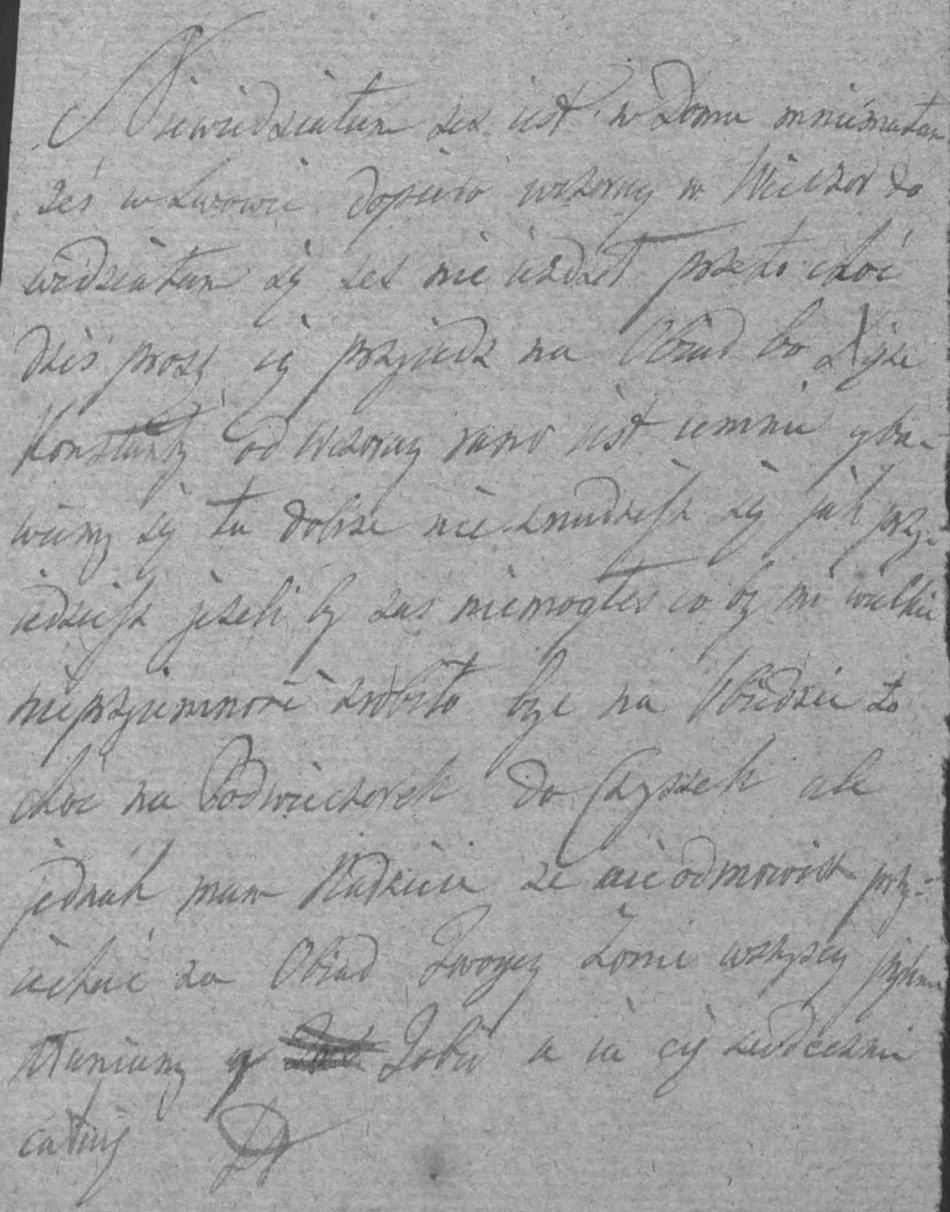 Niewiedziałam żeś iest w Domu mniemałam
żeś w Lwowie dopiero wczoray w Wieczor do
wiedziałam się żeś nie iezdził przeto choć
dziś proszę cię przyjedz na Obiad bo Xiąże
Konstanty od Wczoray rano iest iemnie yba-
wiemy się tu dobrze nie znudzisz się jak przy-
iedziesz jeżeli by zas niemogłeś co by mi wielkie
nieprzyiemność zrobiło byc na Obiedzie to
choc na Podwieczorek do Czyszek ale
jednak mam Nadzieie ze nieodmowisz przy-
iechać na Obiad Twoyey Zonie wszyscy
kłaniamy y Tobie a ia cię serdecznie
całuię